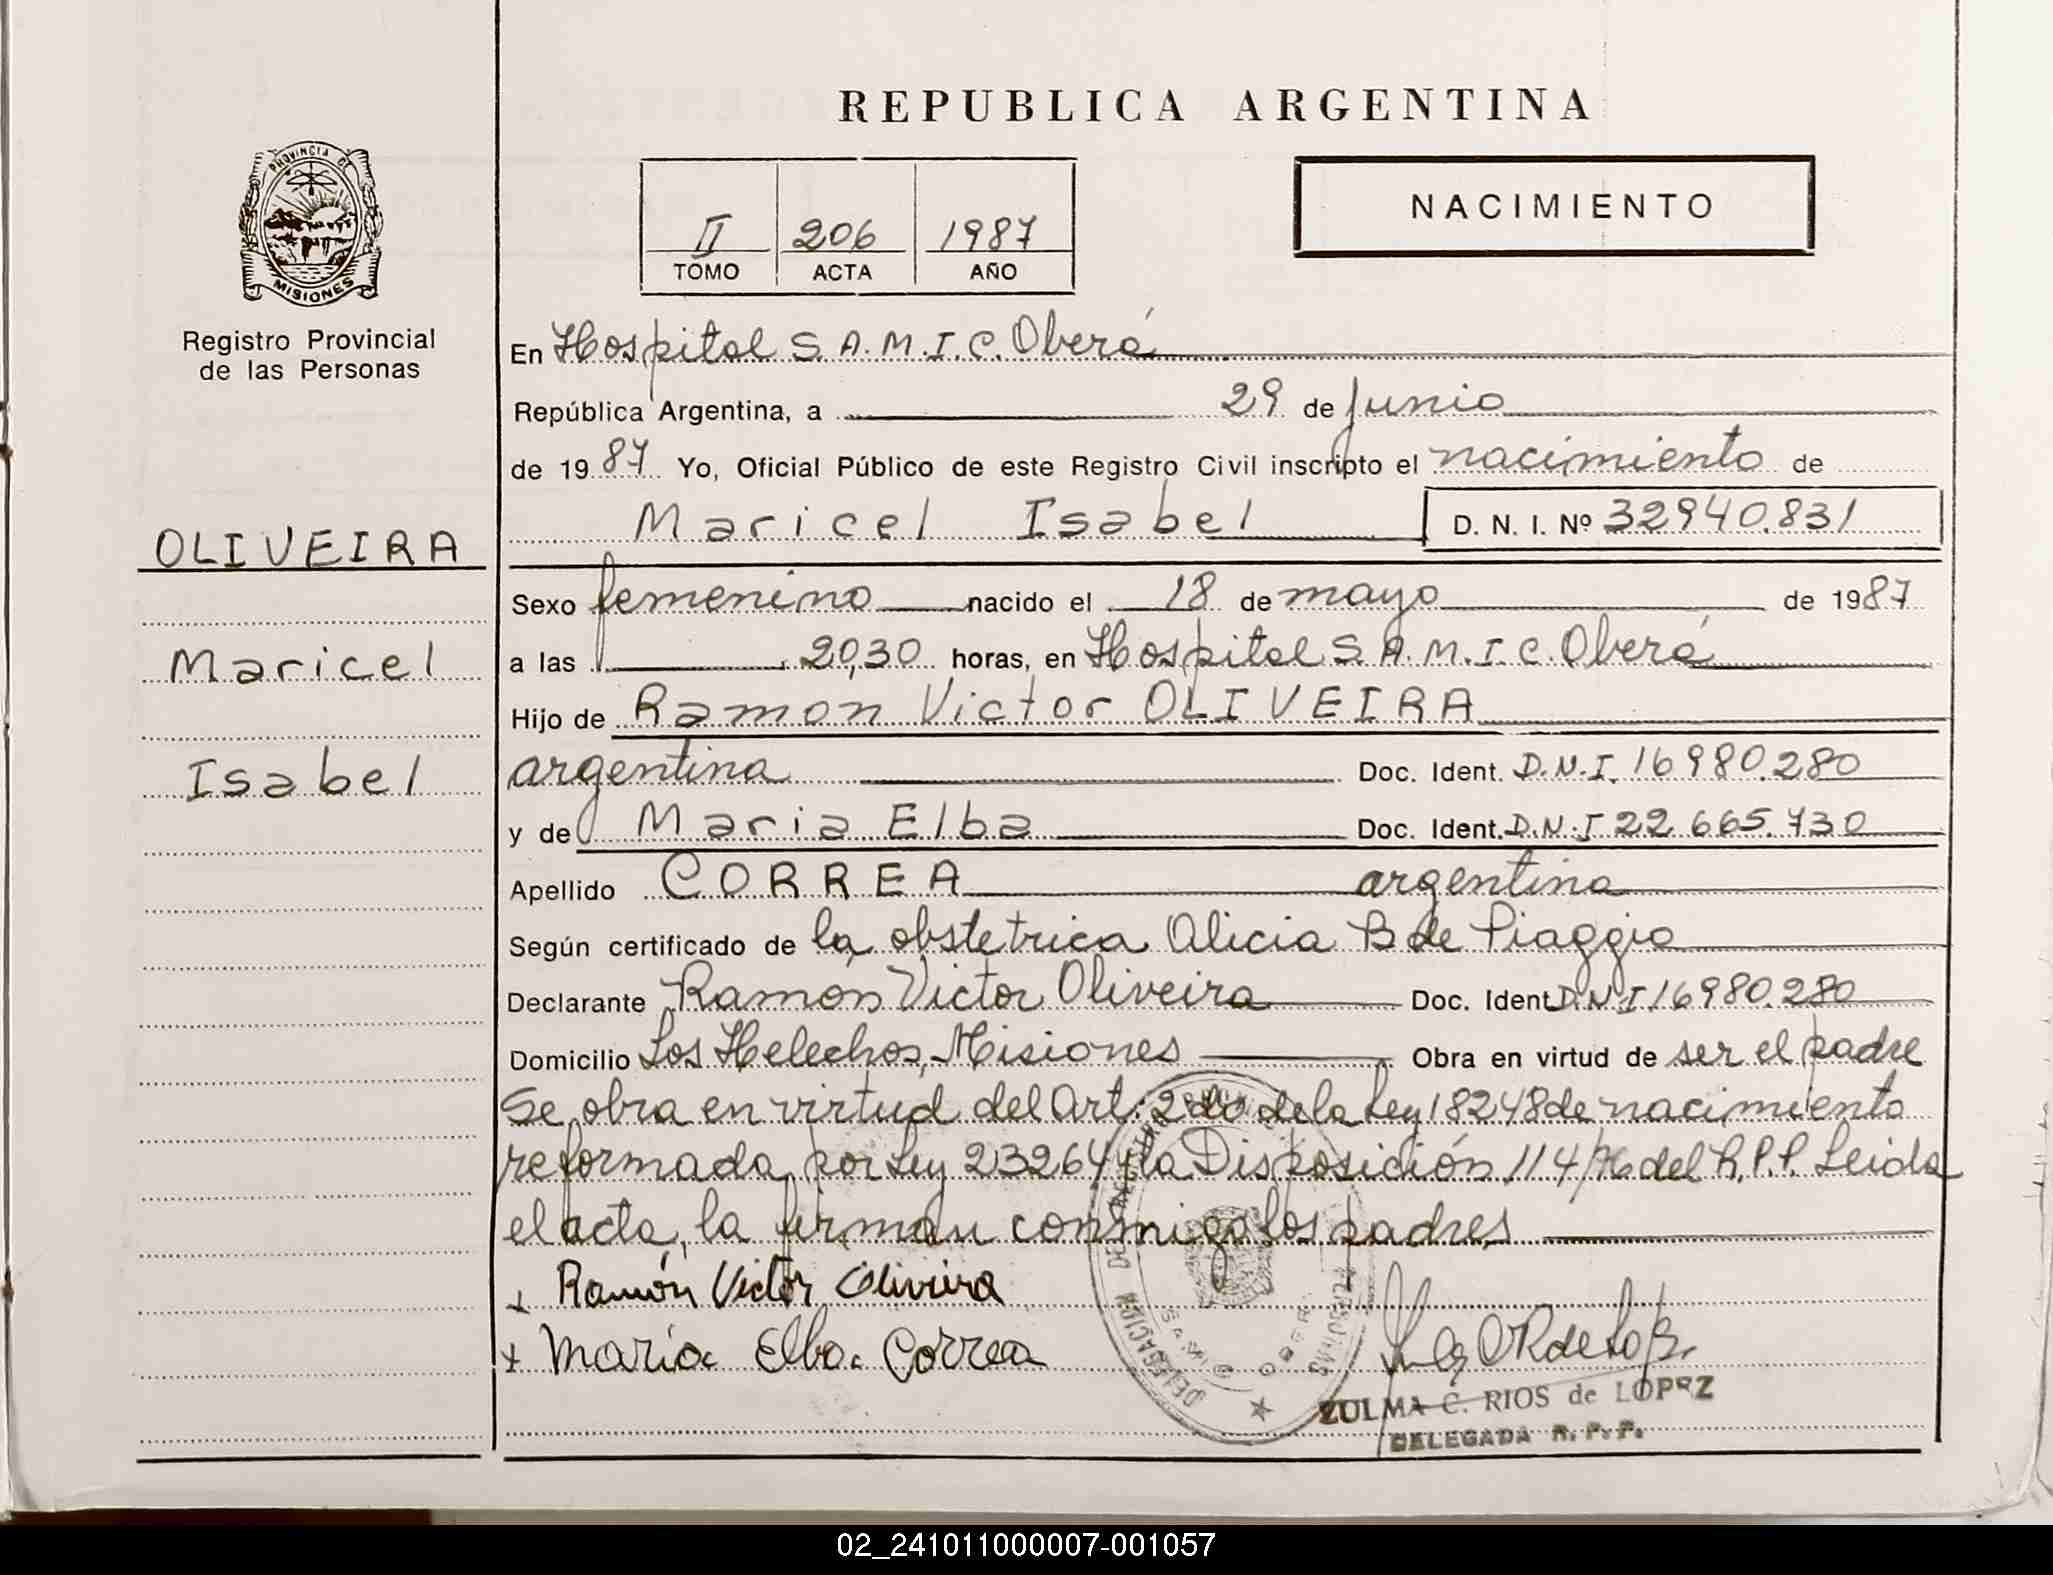 REPUBLICA ARGENTINA
PROVINCIA DE
MISIONES
Registro Provincial
de las Personas
II 206 1987
TOMO ACTA AÑO
NACIMIENTO
En Hospital S.A.M.I.C. Oberá
República Argentina, a 29 de Junio
de 1987 Yo, Oficial Público de este Registro Civil inscripto el nacimiento de
Maricel Isabel D. N. I. Nº 32940.831
OLIVEIRA
Maricel
Isabel
Sexo femenino nacido el 18 de mayo de 1987
a las 20,30 horas, en Hospital S.A.M.I.C. Oberá
Hijo de Ramón Victor OLIVEIRA
argentina Doc. Ident. D.N.I. 16980.280
y de Maria Elba Doc. Ident. D.N.I 22.665.730
Apellido CORREA argentina
Según certificado de la obstetrica Alicia B de Piaggio
Declarante Ramón Victor Oliveira Doc. Ident D.N.I 16980.280
Domicilio Los Helechos, Misiones Obra en virtud de ser el padre
Se obra en virtud del Art: 2do de la Ley 18248 de nacimiento
reformada por Ley 23264 y la Disposición 114/76 del R.P.P. Leida
el acta, la firman conmigo los padres
x Ramón Victor Oliveira
x María Elba Correa
ZULMA C. RIOS de LOPEZ
DELEGADA R.P.P.
02_241011000007-001057